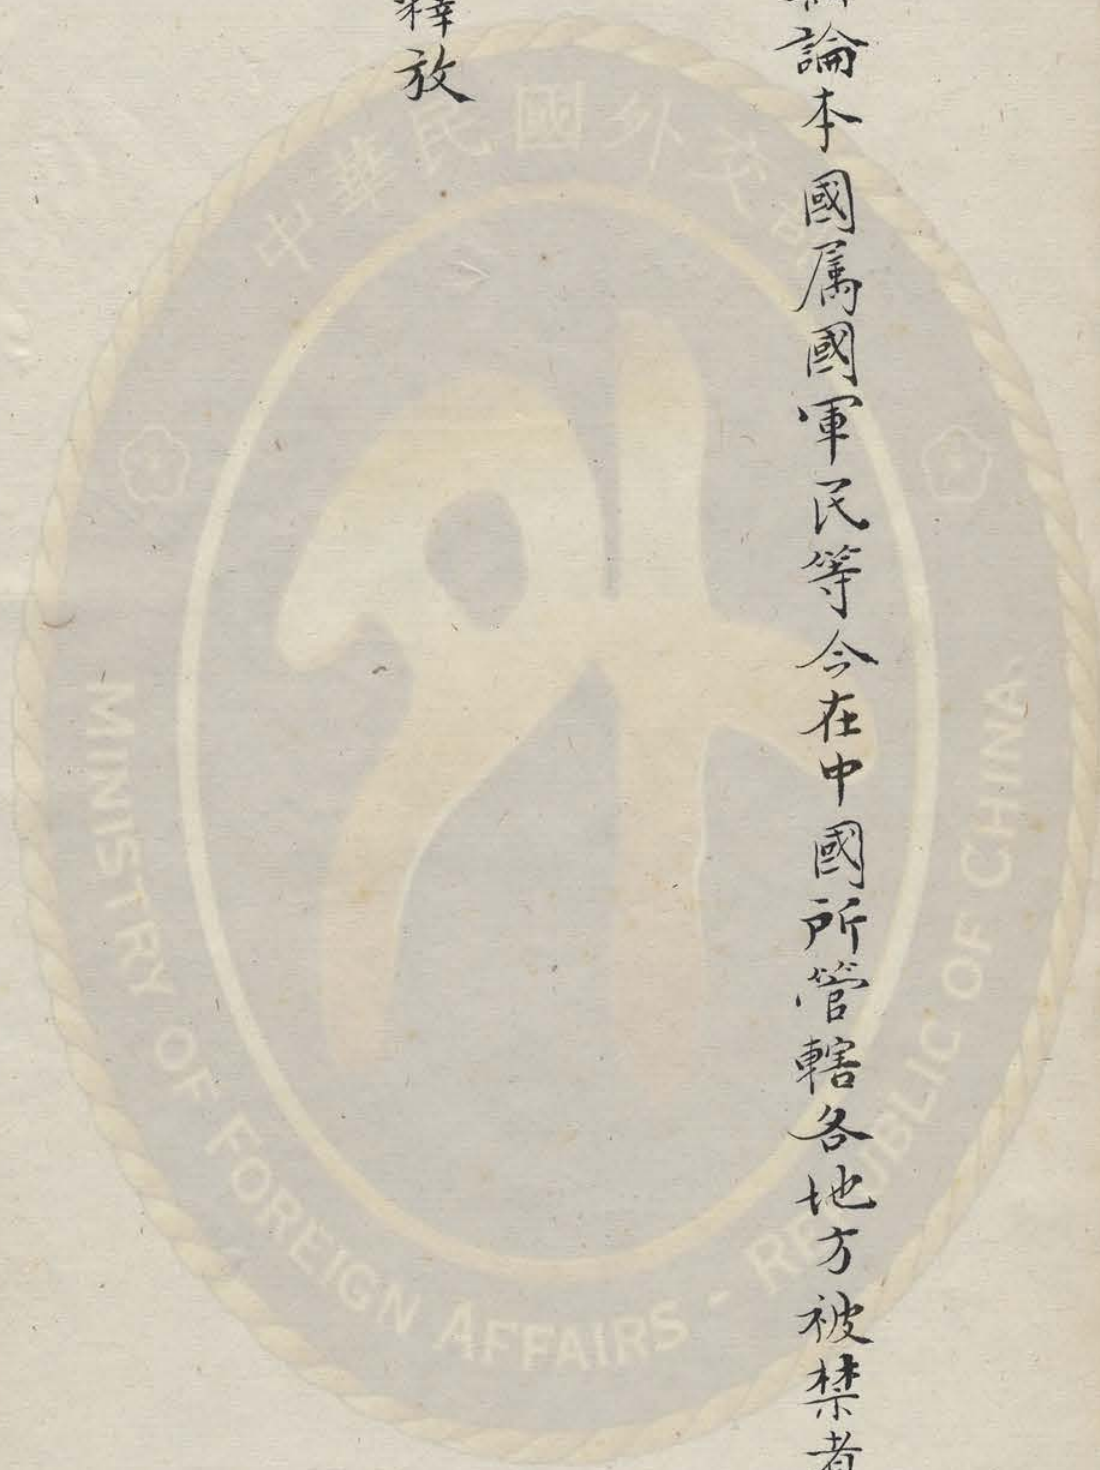 論本國属國軍民等今在中國所管轄各地方被禁者
釋放
中華民國外交
MINISTRY OF FOREIGN AFFAIRS - REPUBLIC OF CHINA